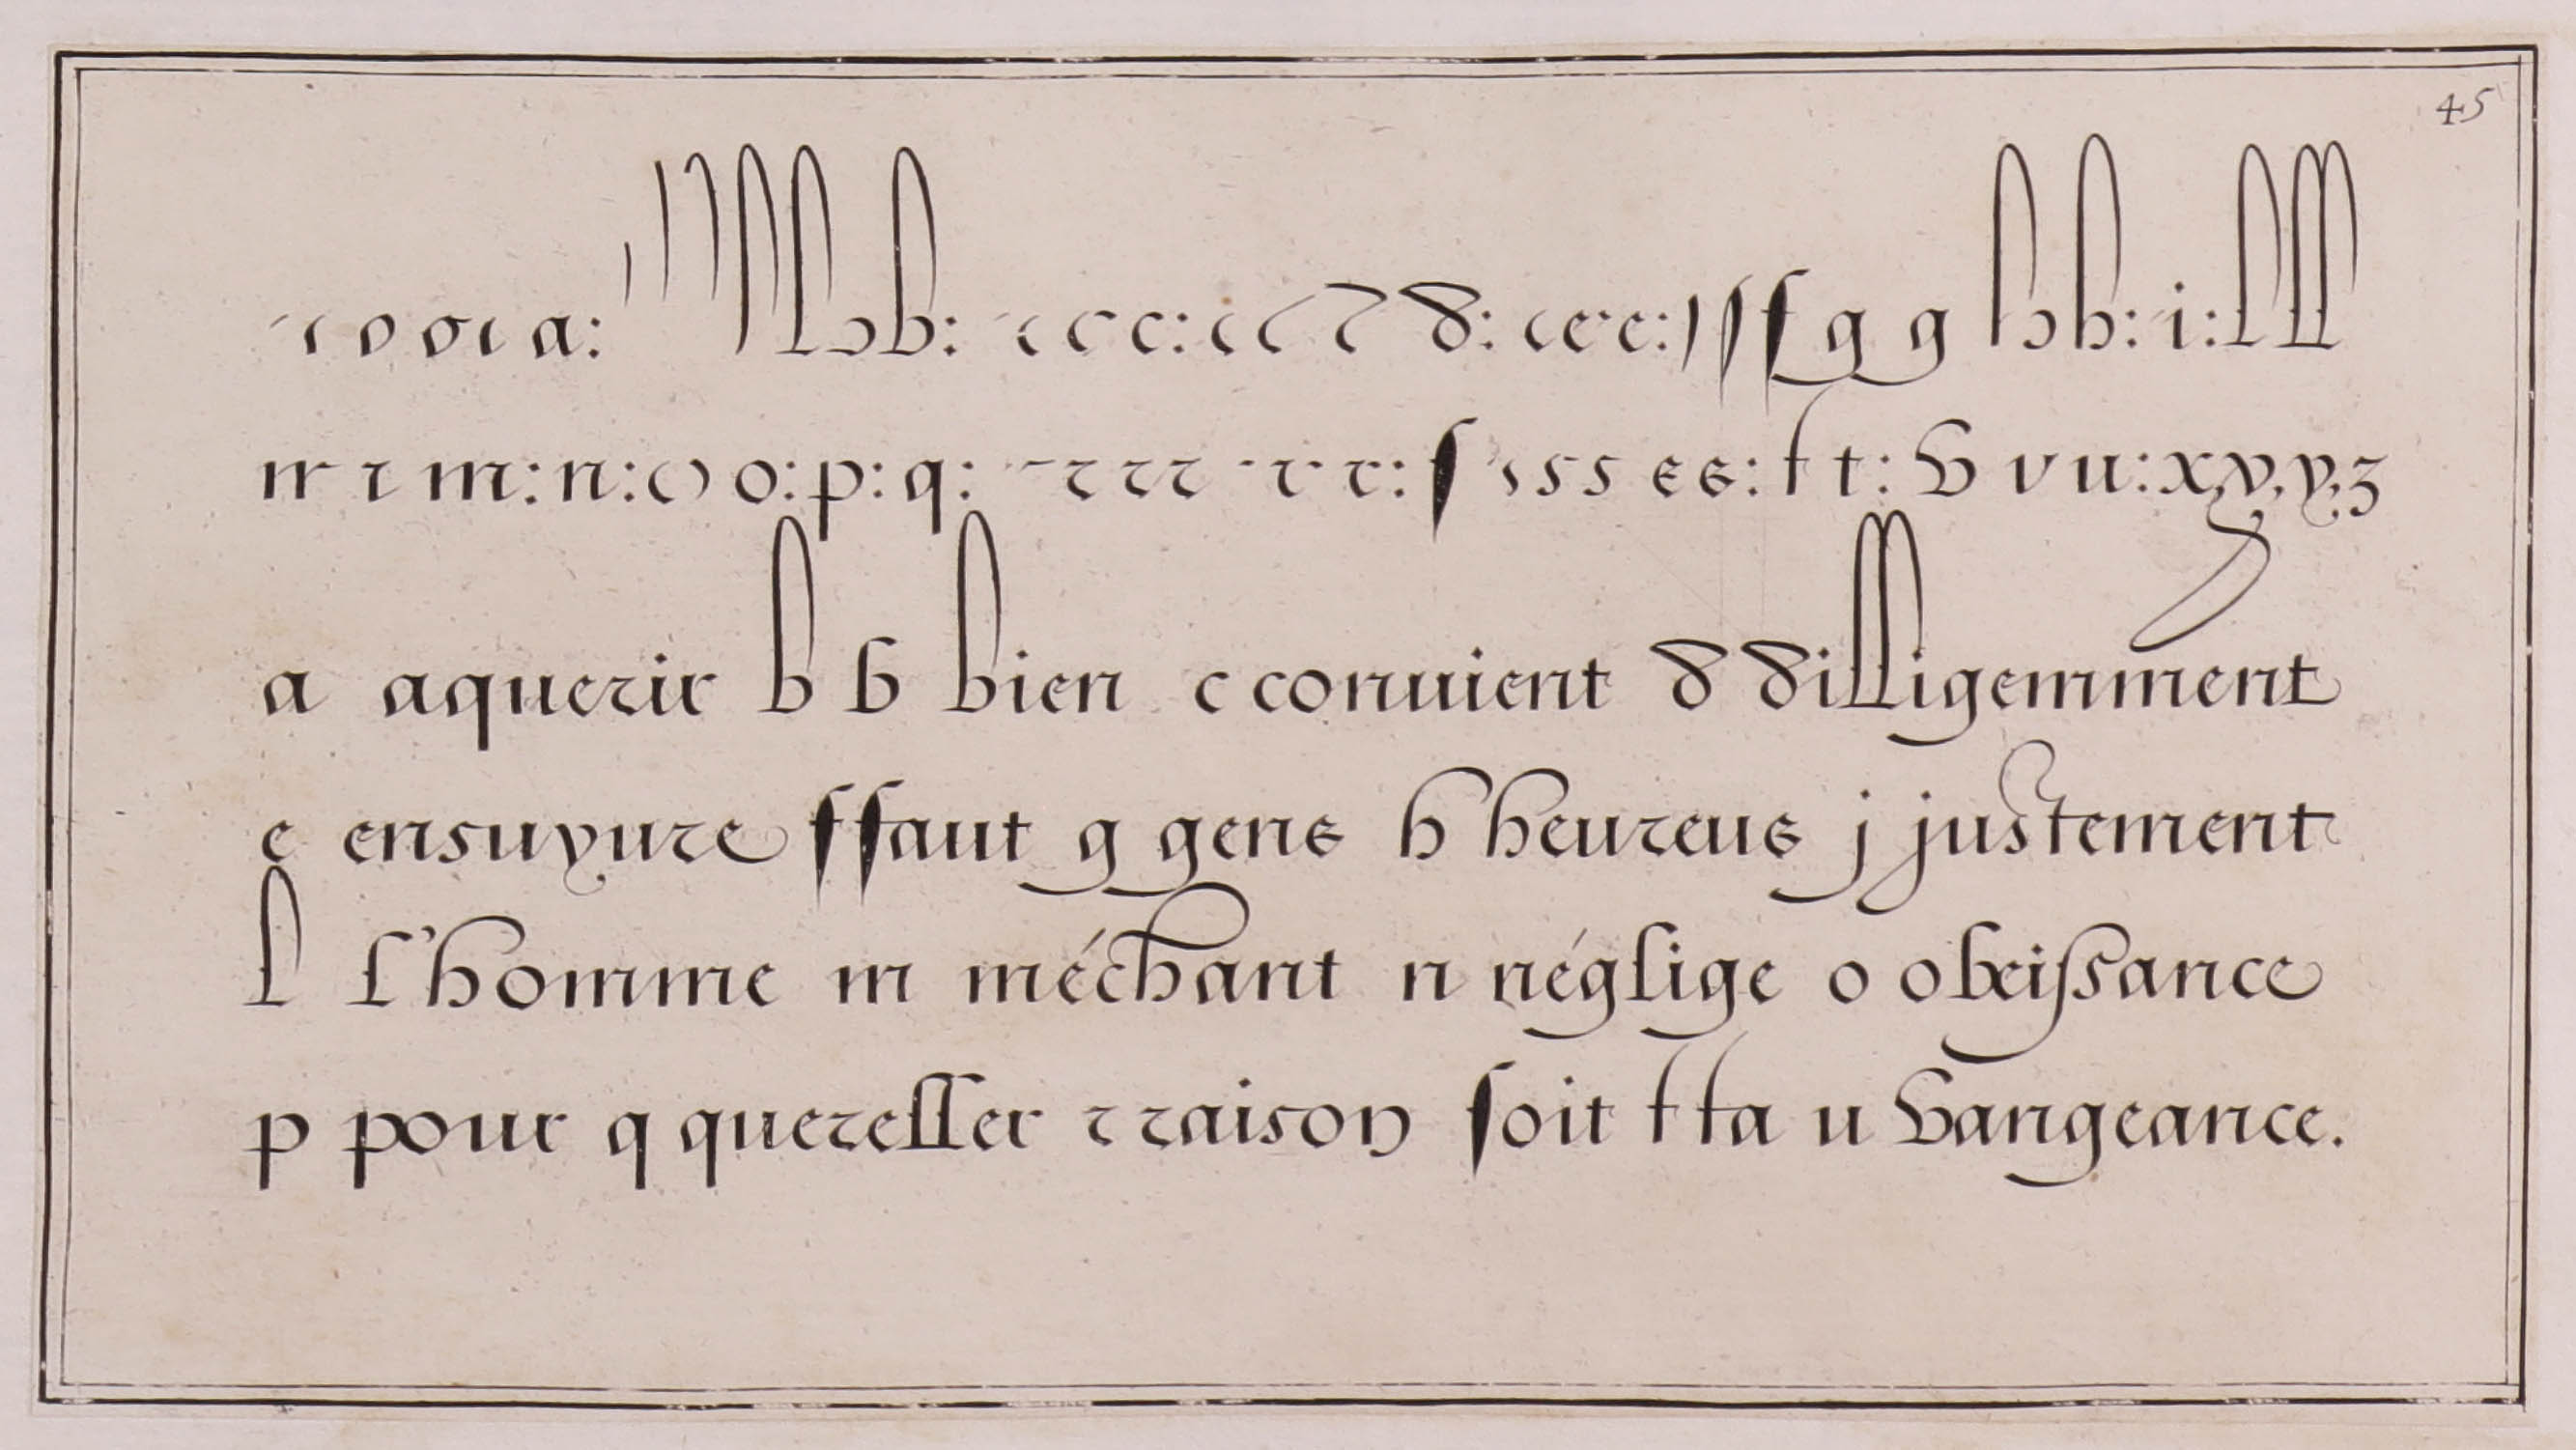 45
a: b: c: d: e: f g g h h: i: l ll
m m: n: o o: p: q: r r: ſ s s s: t t: v v u: x y, y, z
a aquerir b b bien c convient d dilligemment
e ensuyure f faut g gens h heureus j justement
l l'homme m méchant n néglige o obeiſsance
p pour q quereller r raison ſoit t ta u vangeance.